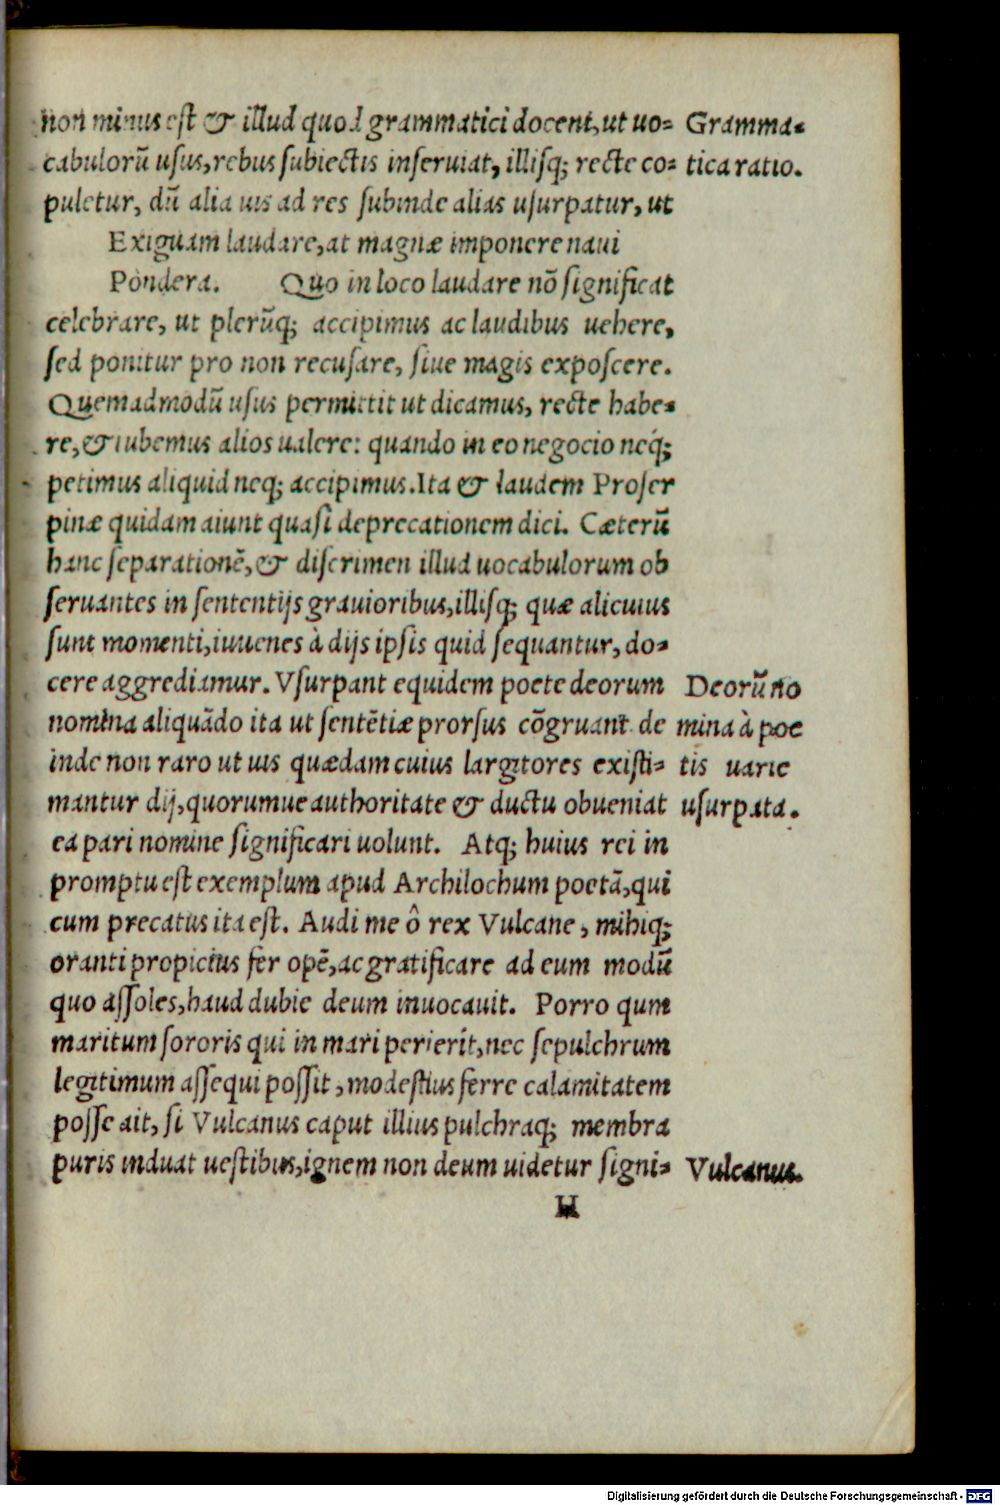 non minus est & illud quod grammatici docent, ut uo= Gramma=
cabulorū usus, rebus subiectis inseruiat, illisq; recte co= tica ratio.
puletur, dū alia uis ad res subinde alias usurpatur, ut
Exiguam laudare, at magnæ imponere naui
Pondera. Quo in loco laudare nō significat
celebrare, ut plerūq; accipimus ac laudibus uehere,
sed ponitur pro non recusare, siue magis exposcere.
Quemadmodū usus permittit ut dicamus, recte habe=
re, & iubemus alios ualere: quando in eo negocio neq́;
petimus aliquid neq; accipimus. Ita & laudem Proser
pinæ quidam aiunt quasi deprecationem dici. Cæterū
hanc separationē, & discrimen illud uocabulorum ob
seruantes in sententijs grauioribus, illisq; quæ alicuius
sunt momenti, iuuenes à dijs ipsis quid sequantur, do=
cere aggrediamur. Vsurpant equidem poete deorum Deorū no
nomina aliquādo ita ut sentētiæ prorsus cōgruant. de mina à poe
inde non raro ut uis quædam cuius largitores existi= tis uarie
mantur dij, quorumue authoritate & ductu obueniat usurpata.
ea pari nomine significari uolunt. Atq; huius rei in
promptu est exemplum apud Archilochum poetā, qui
cum precatus ita est. Audi me ô rex Vulcane, mihiq;
oranti propicius fer opē, ac gratificare ad eum modū
quo assoles, haud dubie deum inuocauit. Porro qum
maritum sororis qui in mari perierit, nec sepulchrum
legitimum assequi possit, modestius ferre calamitatem
posse ait, si Vulcanus caput illius pulchraq; membra
puris induat uestibus, ignem non deum uidetur signi= Vulcanus.
H
Digitalisierung gefördert durch die Deutsche Forschungsgemeinschaft - DFG